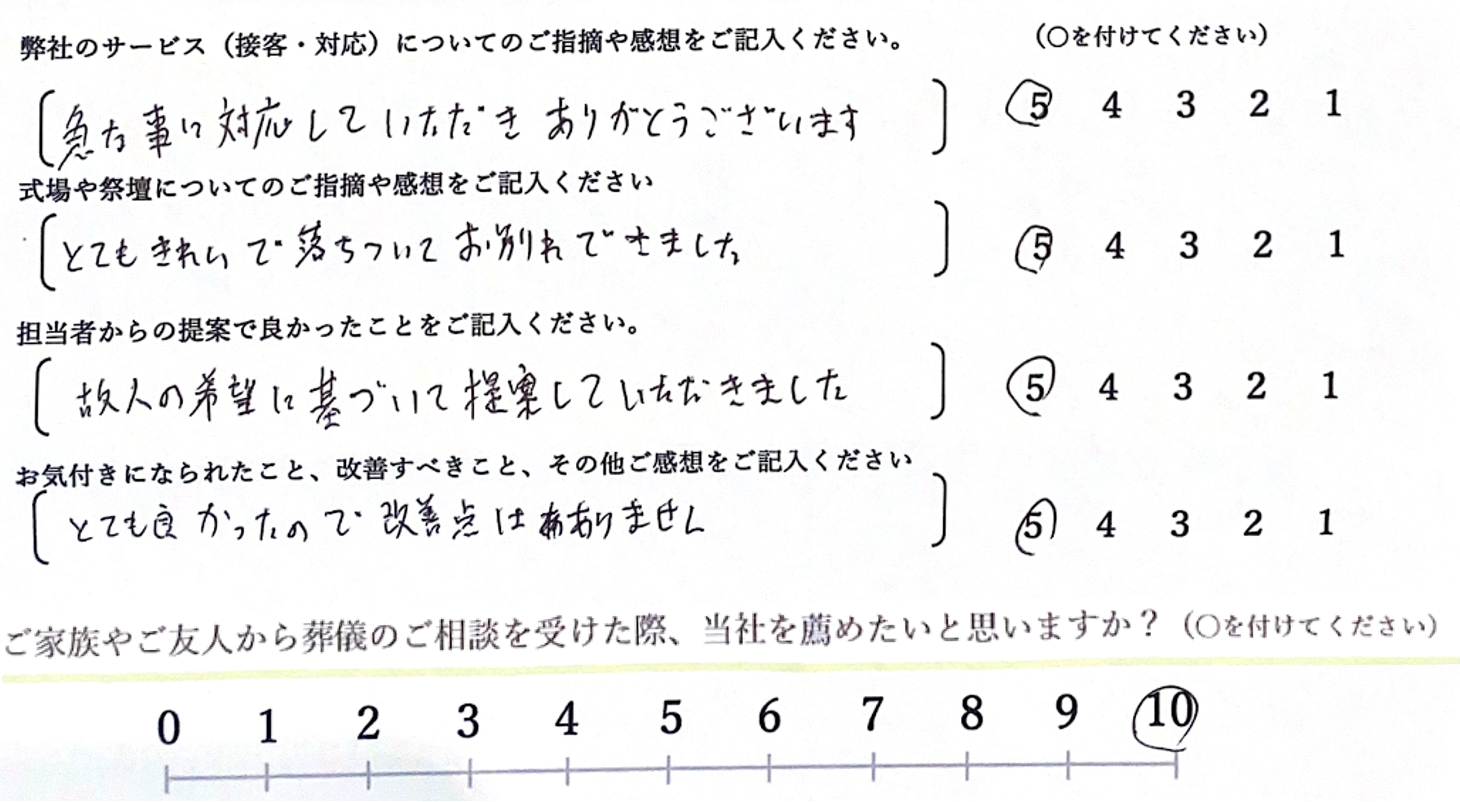 弊社のサービス（接客・対応）についてのご指摘や感想をご記入ください。 （〇を付けてください）
急な事に対応していただき ありがとうございます 5 4 3 2 1
式場や祭壇についてのご指摘や感想をご記入ください
とても きれいで 落ちついて お別れできました 5 4 3 2 1
担当者からの提案で良かったことをご記入ください。
故人の希望に基づいて提案していただきました 5 4 3 2 1
お気付きになられたこと、改善すべきこと、その他ご感想をご記入ください
とても良かったので 改善点は ありません 5 4 3 2 1
ご家族やご友人から葬儀のご相談を受けた際、当社を薦めたいと思いますか？（〇を付けてください）
0 1 2 3 4 5 6 7 8 9 10